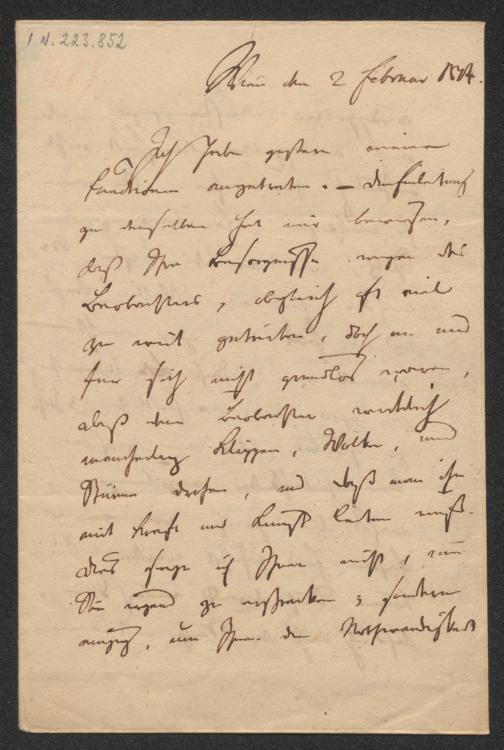 I.N. 223.852
Wien den 2 Februar
Ich habe gestern meine
Funktionen angetreten. – die Einleitung
zu denselben hat mir bewiesen,
daß Ihre Besorgnisse wegen des
Beobachters, obgleich oft viel
zu weit getrieben, doch an und
für sich nicht grundlos waren,
daß dem Beobachter wirklich
mancherley Klippen, Wolken, und
Stürme drohen, und daß man ihn
mit Kraft und Kunst leiten muß.
Dies sage ich Ihnen nicht, um
Sie irgend zu erschrecken; sondern
einzig, um Ihnen die Nothwendigkeit